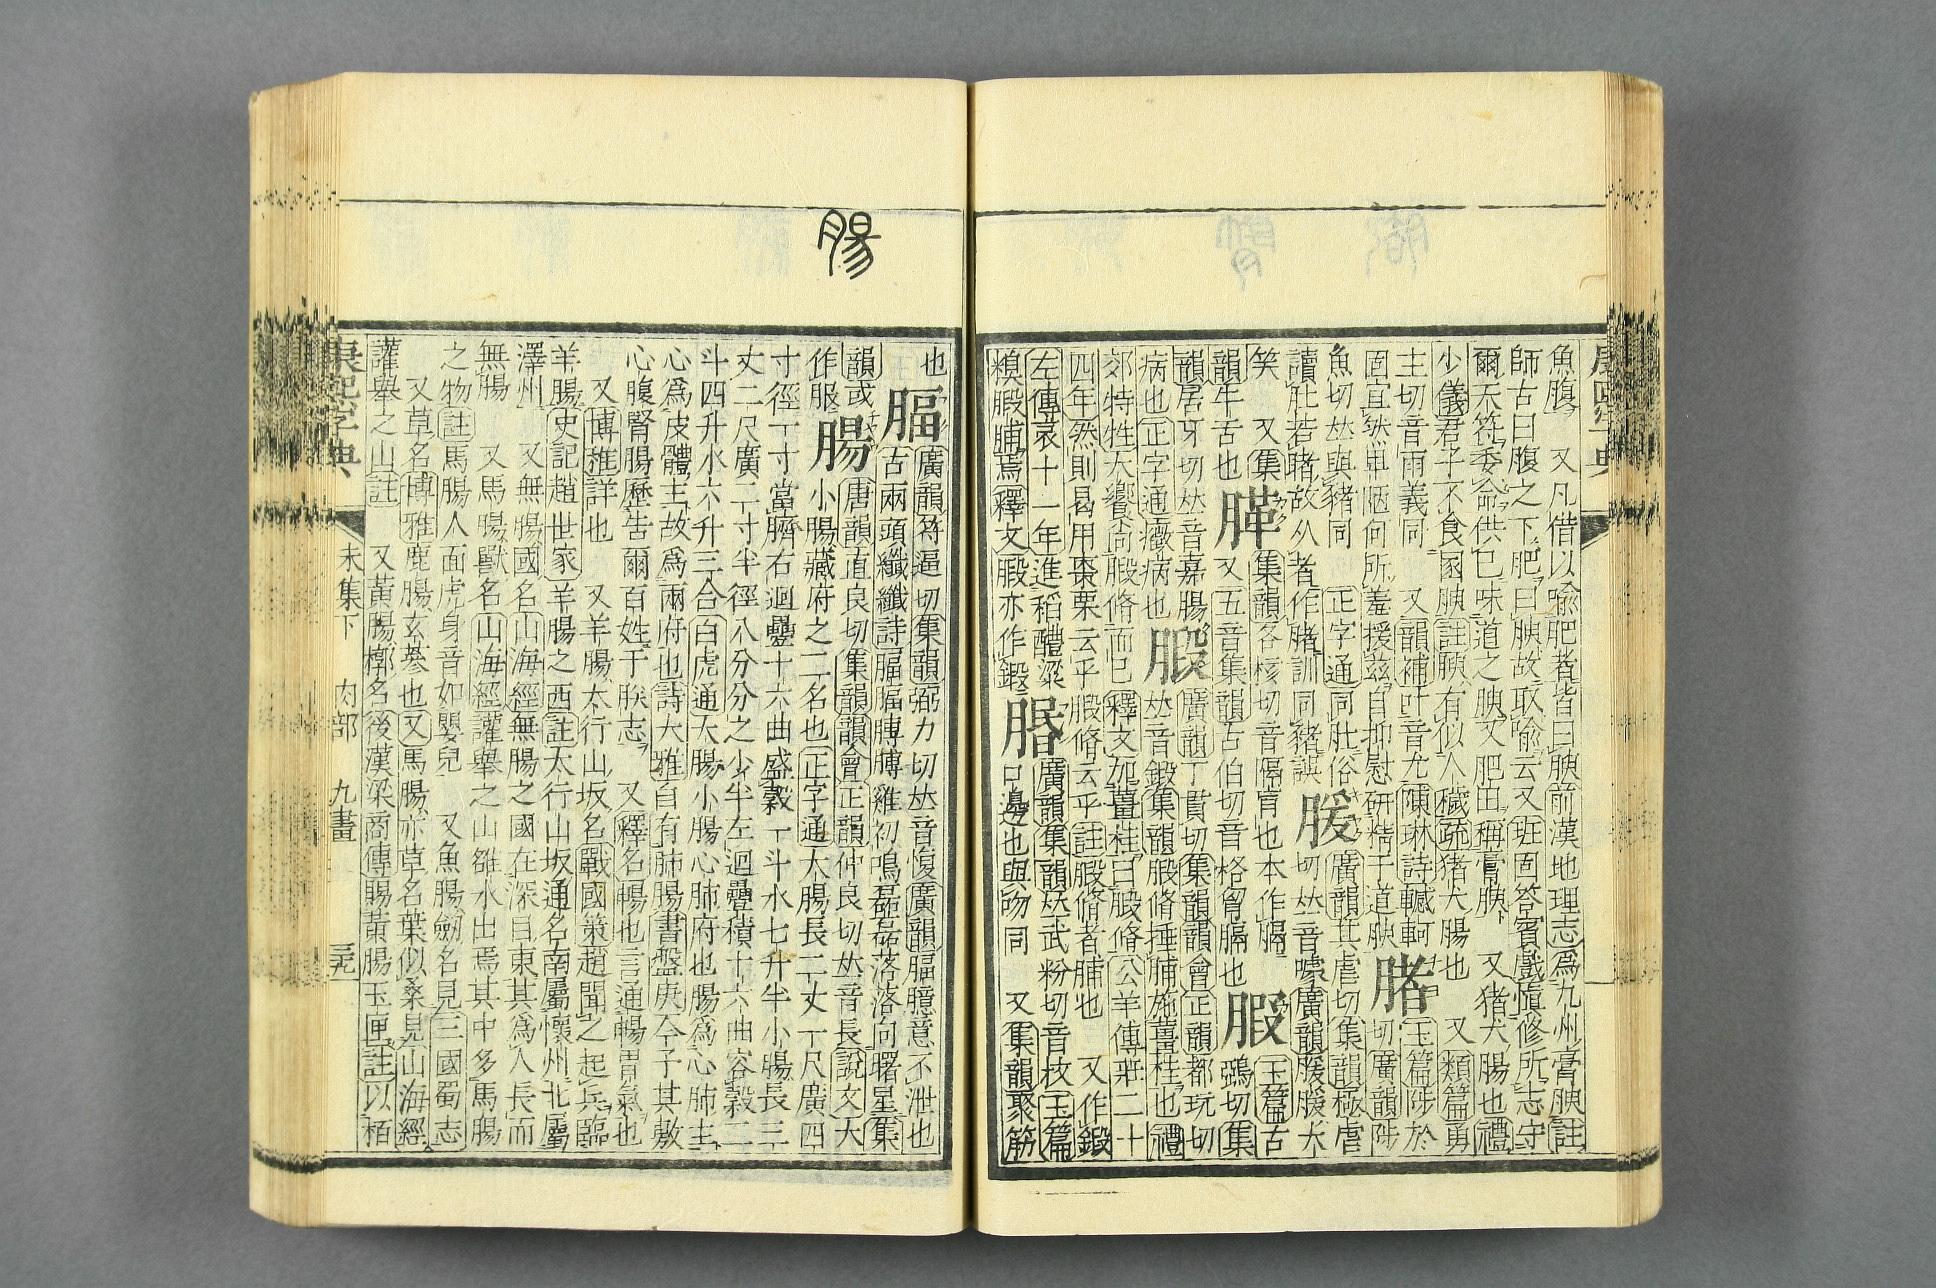 魚腹 又凡借以喩肥者皆曰腴前漢地理志爲九州膏腴註
師古曰腹之下肥曰腴故取喩云又班固答賓戲愼修所志守
爾天符委命供己味道之腴又肥田稱膏腴 又豬犬腸也禮
少儀君子不食圂腴註腴有似人穢疏豬犬腸也 又類篇勇
主切音雨義同 又韻補叶音尤陳琳詩轗軻
固宜然卑陋何所羞援茲自抑慰硏精于道腴 䐗 玉篇陟於切廣韻陟
魚切𠀤與豬同 正字通同肚俗
讀肚若賭故从者作䐗訓同豬誤 腶 廣韻其虐切集韻極虐
切𠀤音噱廣韻
笑 又集韻各核切音隔肓也本作膈
韻牛舌也 䩯 又五音集韻古伯切音格胷膈也 腵 玉篇古鵶切集
韻居牙切𠀤音嘉腸
病也正字通癥病也 腶 廣韻丁貫切集韻韻會正韻都玩切
𠀤音鍛集韻腶脩捶脯施薑桂也禮
郊特牲大饗尚腶脩而已釋文加薑桂曰腶脩公羊傳莊二十
四年然則曷用棗栗云乎腶脩云乎註腶脩者脯也 又作鍛
左傳哀十一年進稻醴粱
糗腶脯焉釋文腶亦作鍛 脗 廣韻集韻𠀤武粉切音抆玉篇
口邊也與吻同 又集韻聚筋
也 腷 廣韻符逼切集韻弼力切𠀤音愎廣韻腷臆意不泄也
古兩頭纖纖詩腷腷膊膊雞初鳴磊磊落落向曙星集
韻或
作服 腸 唐韻直良切集韻韻會正韻仲良切𠀤音長說文大
小腸藏府之二名也正字通大腸長二丈一尺廣四
寸徑一寸當臍右迴疊十六曲盛穀一斗水七升半小腸長三
丈二尺廣二寸半徑八分分之少半左迴疊積十六曲容穀二
斗四升水六升三合白虎通大腸小腸心肺府也腸爲心肺主
心爲皮體主故爲兩府也詩大雅自有肺腸書盤庚今予其敷
心腹腎腸歷吿爾百姓于朕志 又釋名暢也言通暢胃氣也
又博雅詳也 又羊腸太行山坂名戰國策趙聞之起兵臨
羊腸史記趙世家羊腸之西註太行山坂通名南屬懷州北屬
澤州 又無腸國名山海經無腸之國在深目東其爲人長而
無腸 又馬腸獸名山海經讙舉之山雒水出焉其中多馬腸
之物註馬腸人面虎身音如嬰兒 又魚腸劒名見三國蜀志
又草名博雅鹿腸玄參也又馬腸亦草名葉似桑見山海經
讙舉之山註 又黃腸槨名後漢梁商傳賜黃腸玉匣註以栢
康熙字典 未集下 肉部 九畫
腸